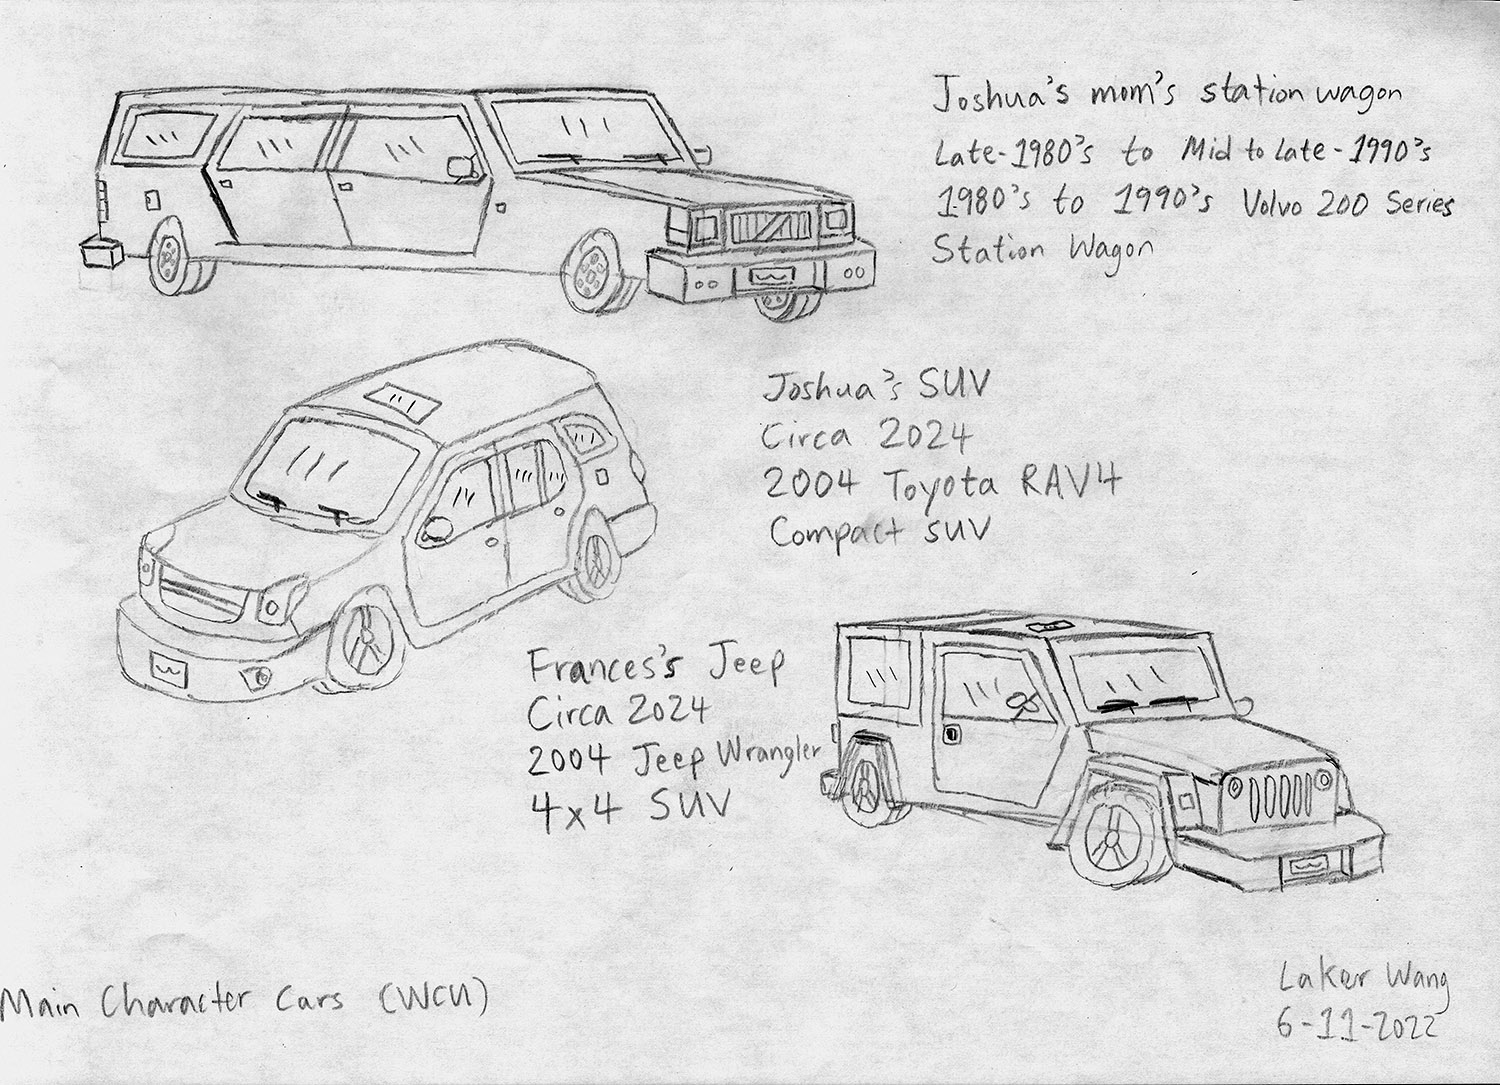 Joshua's mom's station wagon
Late-1980's to Mid to Late-1990's
1980's to 1990's Volvo 200 Series
Station Wagon
Joshua's SUV
Circa 2024
2004 Toyota RAV4
Compact SUV
Frances's Jeep
Circa 2024
2004 Jeep Wrangler
4x4 SUV
Main Character Cars (WCU)
Laker Wang
6-11-2022